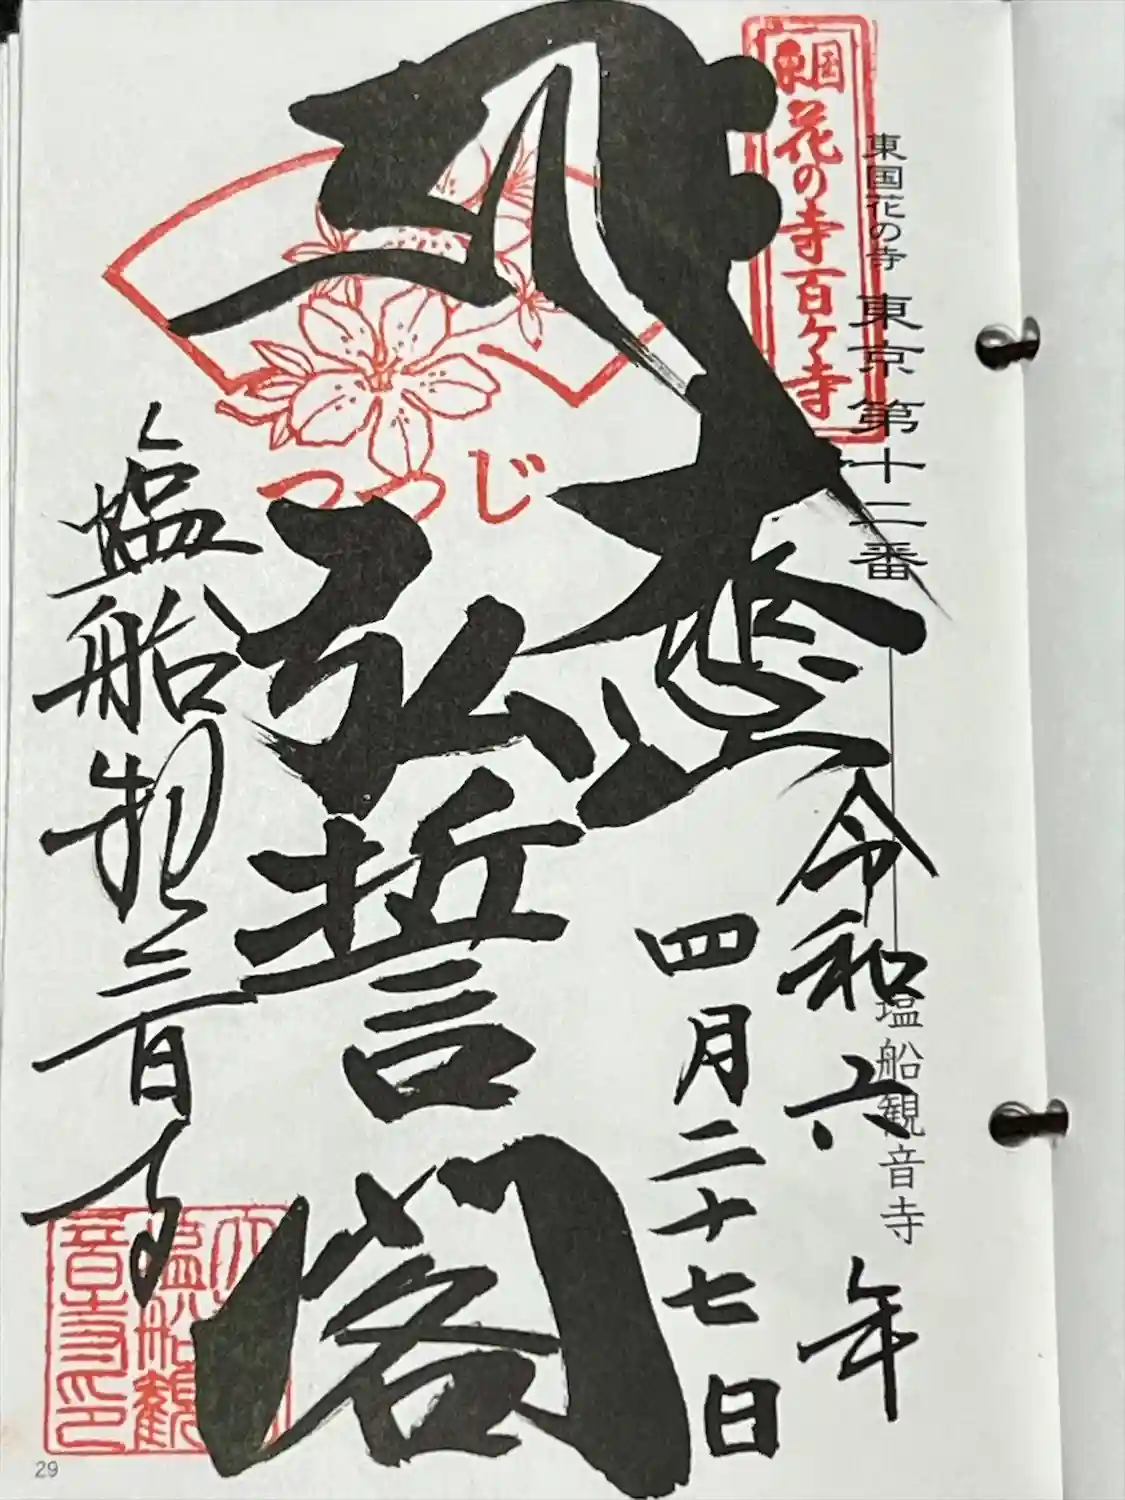 東国花の寺 東京第十二番
塩船観音寺
東国花の寺百ケ寺
つつじ
大悲
弘誓閣
令和六年
四月二十七日
塩船観音寺
29